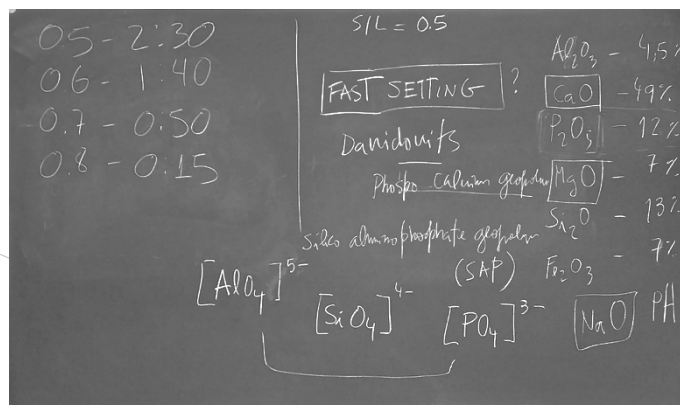 0.5 - 2:30
0.6 - 1:40
0.7 - 0:50
0.8 - 0:15
S/L = 0.5
FAST SETTING ?
Davidovits
Phospo Calcium geopolym
Silico aluminophosphate geopolym
(SAP)
[AlO₄]⁵⁻
[SiO₄]⁴⁻
[PO₄]³⁻
Al₂O₃ - 4,5%
CaO - 49%
P₂O₅ - 12%
MgO - 7%
Si₂O - 13%
Fe₂O₃ - 7%
NaO PH